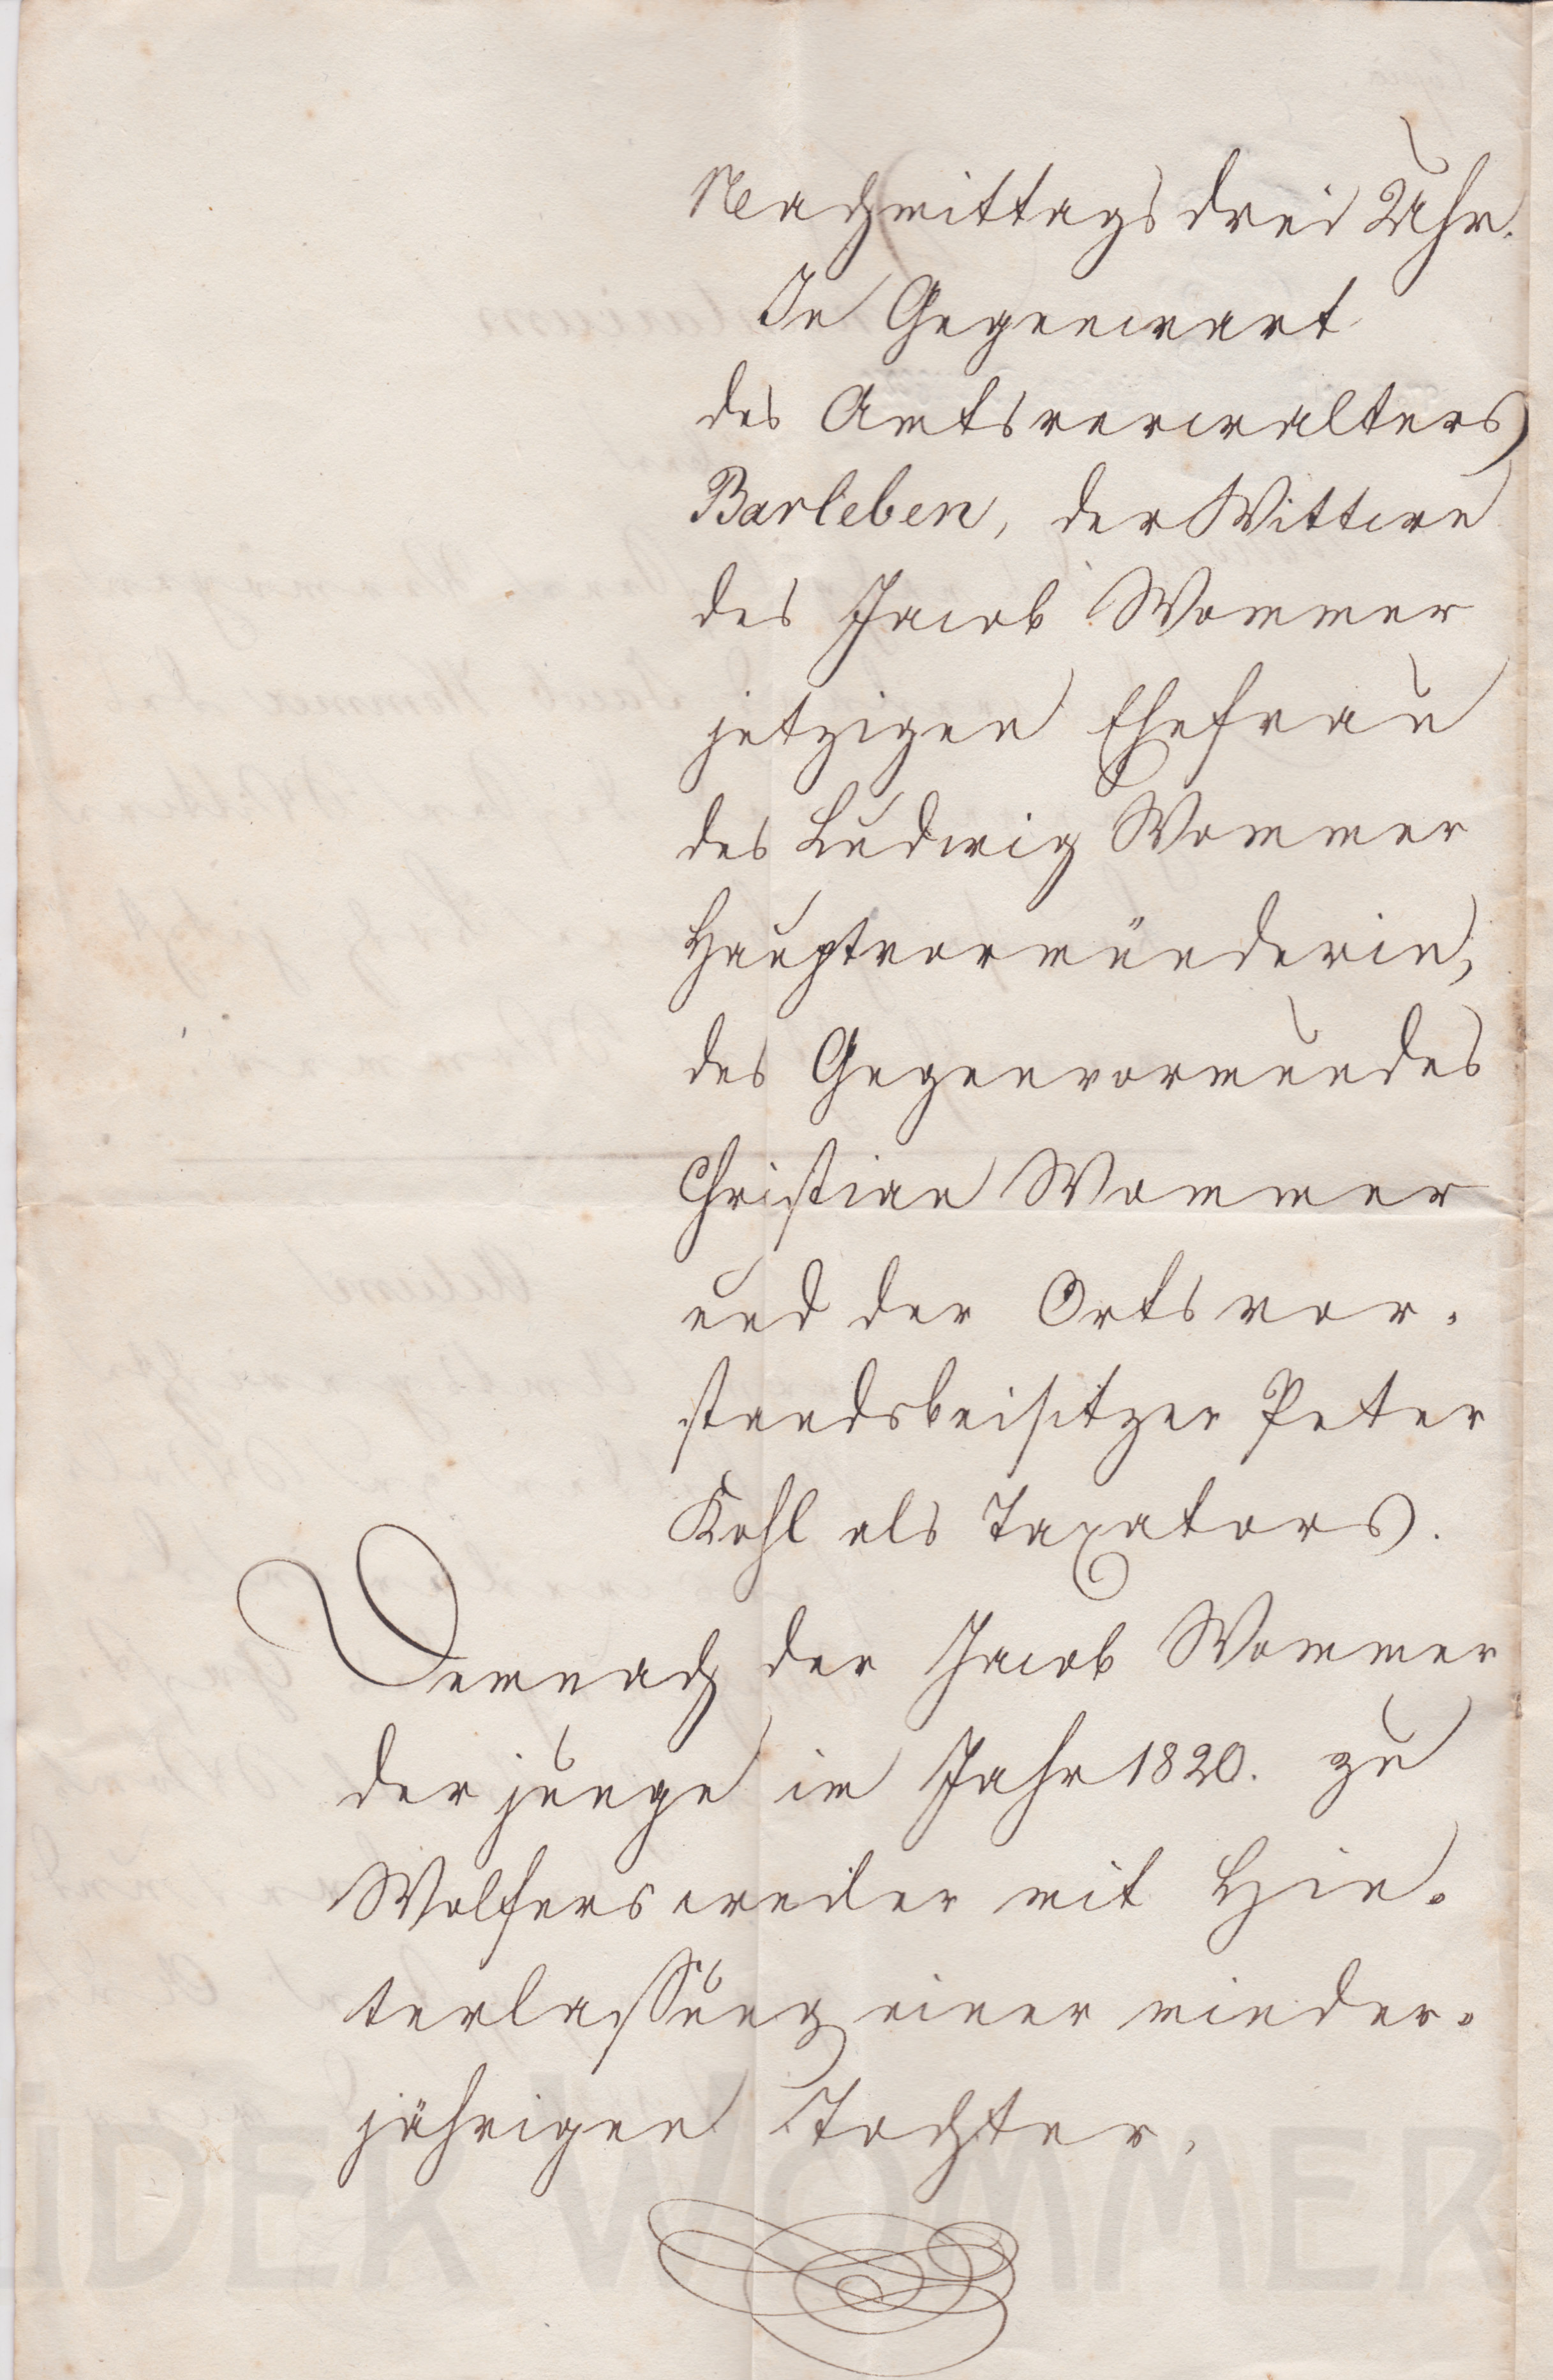 Nachmittags drei Uhr.
In Gegenwart
des Amtsverwalters
Barleben, der Wittwe
des Jacob Wommer
jetzigen Ehefrau
des Ludwig Wommer
Hauptvormünderin,
des Gegenvormundes
Christian Wommer
und der Ortsvor-
standsbeisitzer Peter
Kohl als Taxators.
Demnach der Jacob Wommer
der junge im Jahr 1820. zu
Wolfersweiler mit Hin-
terlassung einer minder-
jährigen Tochter,
IDER WOMMER